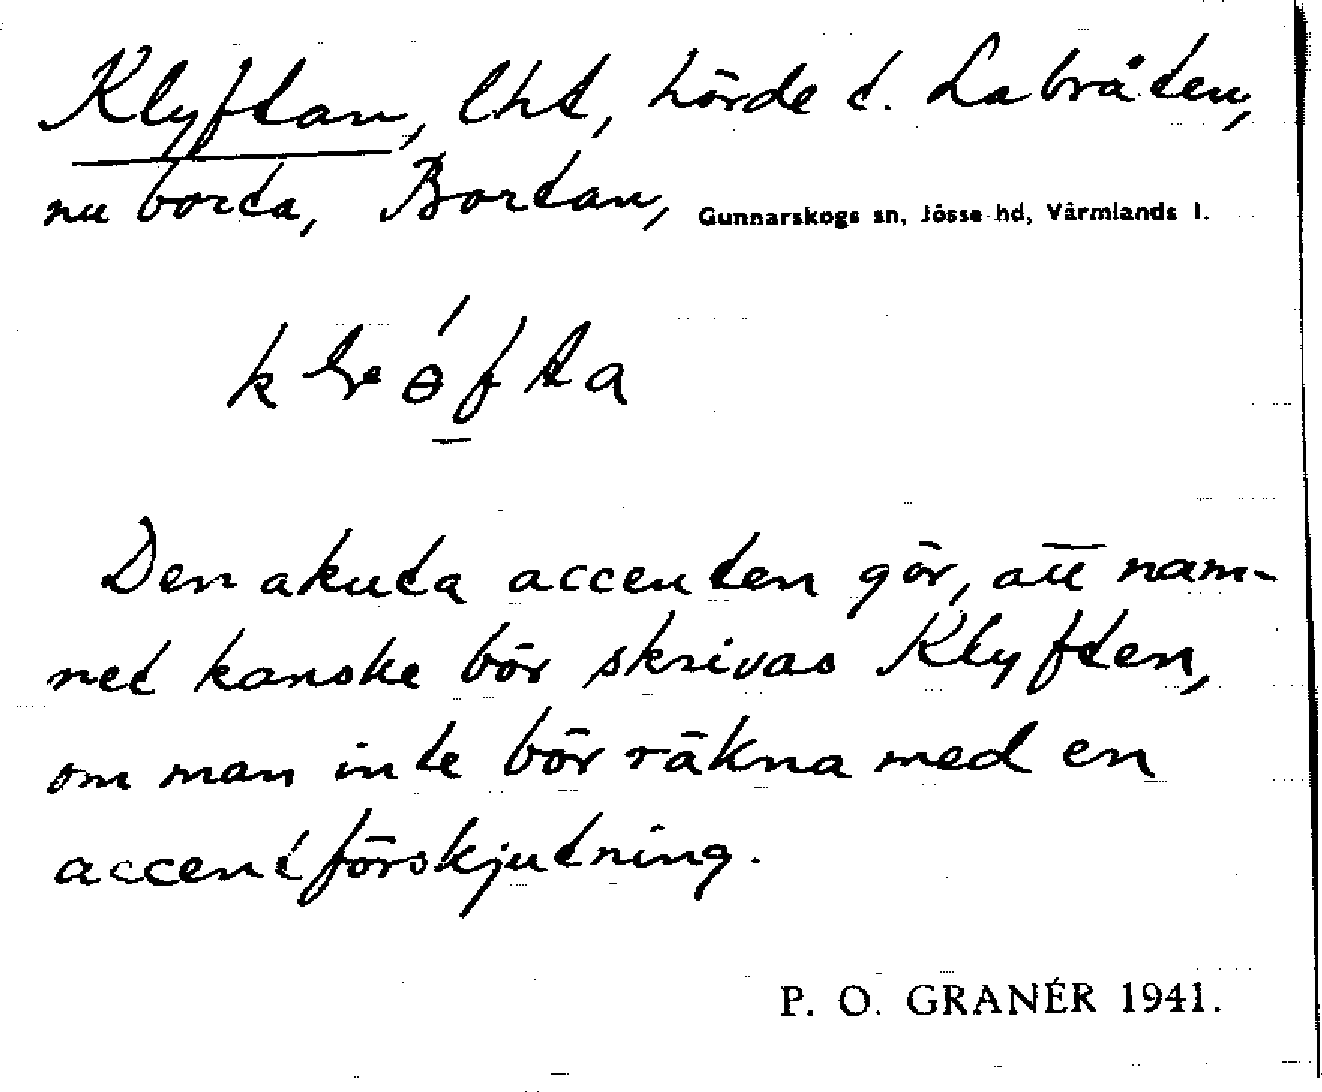 Klyftan, lht, hörde t. Labråten,
nu borta, Bortan, Gunnarskogs sn, Jösse hd, Värmlands l.
Den akuta accenten gör, att nam-
net kanske bör skrivas Klyften,
om man inte bör räkna med en
accentförskjutning.
P. O. GRANÉR 1941.